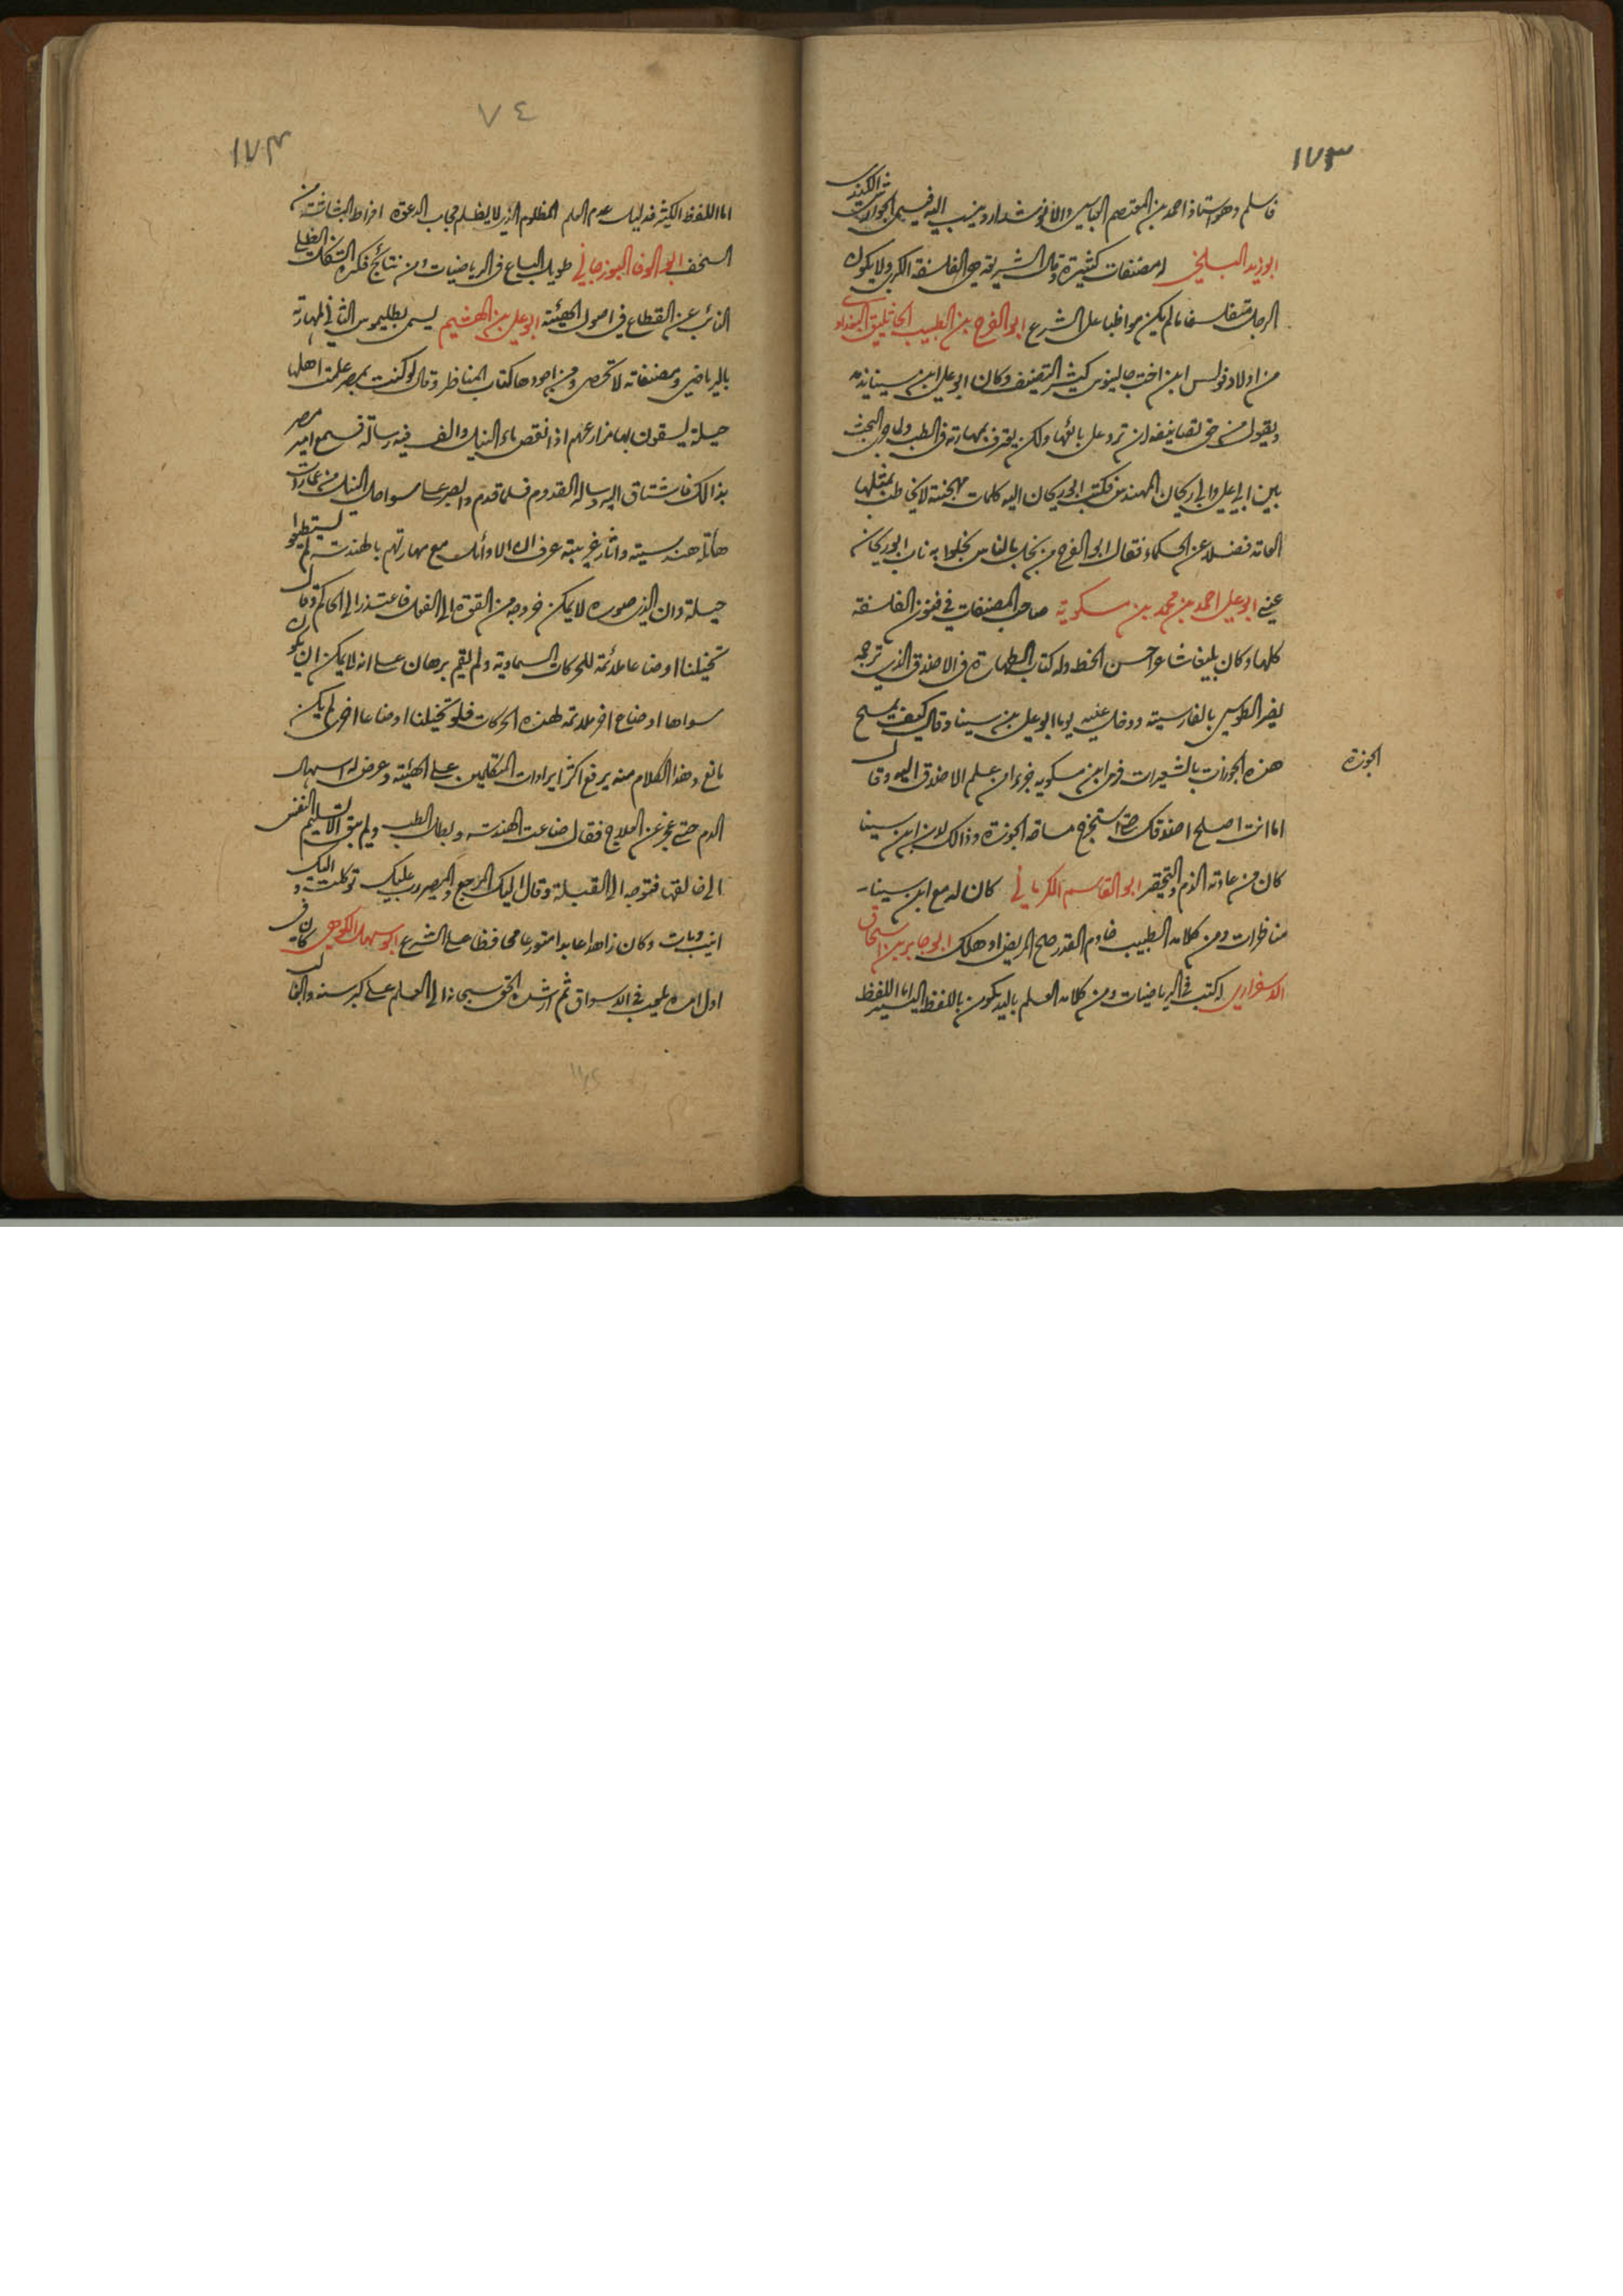 ١٧٣
فاسلم وهو استاذ احمد بن المعتصم العباسي والانوشداروينسب اليه فيسمى الجوارشن الكندى
ابو زيد البلخي له مصنفات كثيرة وقال الشريعة هي الفلسفة الكبرى ولا يكون
الرجل متفلسفا مالم يكن مواظبا على الشرع ابو الفرج بن الطبيب الجاثليق البغدادى
من اولاد فولس ابن اخت جالينوس كثير التصنيف وكان ابو على ابن سينا يذمه
ويقول من حق تصانيفه ان ترد على بائعها ولكن يعترف بمهارته فى الطب ولما وقع البحث
بين ابى على وابى ريحان المهندس فكتب ابو ريحان اليه كلمات مهجنة لا يخاطب بمثلها
العامة فضلا عن الحكماء فقال ابو الفرج من نجل الناس نجلوه به ناب ابو ريحان
عنى ابو على احمد بن محمد بن مسكويه صاحب المصنفات فى فنون الفلسفة
كلها وكان بليغا شاعرا حسن الخط وله كتاب الطهارة فى الاخلاق الذى ترجمه
نصير الطوسى بالفارسية ودخل عليه يوما ابو على بن سينا وقال كيف يمسح
هذه الجوزات بالشعيرات فرمى ابن مسكويه جزء من علم الاخلاق اليه وقال
الجوزة
اما انت اصلح اخلاقك حتى استخرج مساحة الجوزة وذالك لان ابن سينا
كان من عادته الذم والتحقير ابو القاسم الكرمانى كان له مع ابن سينا
مناظرات ومن كلامه الطبيب خادم القدر صلح المريض او هلك ابو حامد بن اسحاق
الاسفرارى له كتب فى الرياضيات ومن كلامه العلم باليد يكون باللفظ اليسير اما اللفظ
٧٤
١٧٤
اما اللفظ الكثير فدليل عدم العلم المظلوم الذى لا يظلم مجاب الدعوة افراط البشاشة من
السخف ابو الوفا البوزجانى طويل الباع فى الرياضيات ومن نتائج فكره الشكل الظلى
النائب عن القطاع فى اصول الهيئة ابو على بن الهيثم يسمى بطليموس الثانى لمهارته
بالرياضى ومصنفاته لا تحصى ومن اجودها كتاب المناظر وقال لو كنت بمصر علمت اهلها
حيلة يسقون بها مزارعهم اذا نقص ماء النيل والف فيه رسالة فسمع امير مصر
بذالك فاشتاق اليه وساله القدوم فلما قدم وابصر على سواحل النيل من عمارات
هائلة هندسية واثار غريبة عرف ان الاوائل مع مهارتهم بالهندسة لم يستطيعوا
حيلة وان الذى صوره لا يمكن خروجه من القوة الى الفعل فاعتذر الى الحاكم وقال
تخيلنا اوضاعا ملائمة للحركات السماوية ولم يقم برهان على انه لا يمكن ان يكون
سواها اوضاع اخر ملائمة لهذه الحركات فلو تخيلنا اوضاعا اخرى لم يكن
مانع وهذا الكلام منه يرفع اكثر ايرادات المتكلمين على الهيئة وعرض له اسهال
الدم حتى عجز عن العلاج فقال ضاعت الهندسة وبطل الطب ولم يبق الا تسليم النفس
الى خالقها فتوجه الى القبلة وقال اليك المرجع والمصير رب عليك توكلت واليك
انيب ومات وكان زاهدا عابدا متورعا محافظا على الشرع ابو سهل الكوهى كان فى
اول امره يلعب فى الاسواق ثم ارشده الحق سبحانه الى العلم على كبر سنه والف